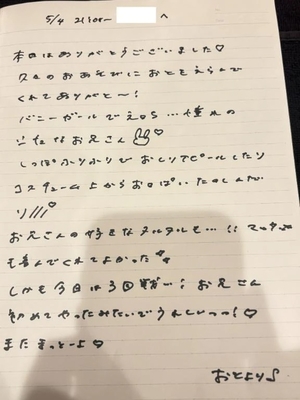 5/4 21:00~ へ
本日はありがとうございました♡
久々のおあそびにおとをえらんで
くれてありがと〜!
バニーガールでえっち…憧れの
なお兄さん♡
しっぽふりふりで おしりでピールしたり
コスチューム上からおっぱい たのしんだ
り///♡
お兄さんの好きなヌルヌルも…!! マット
も喜んでくれてよかった
しかも今日は3回戦〜! お兄さん
初めてやったみたいでうれしいっっ!♡
またきっとーよ♡
おとより